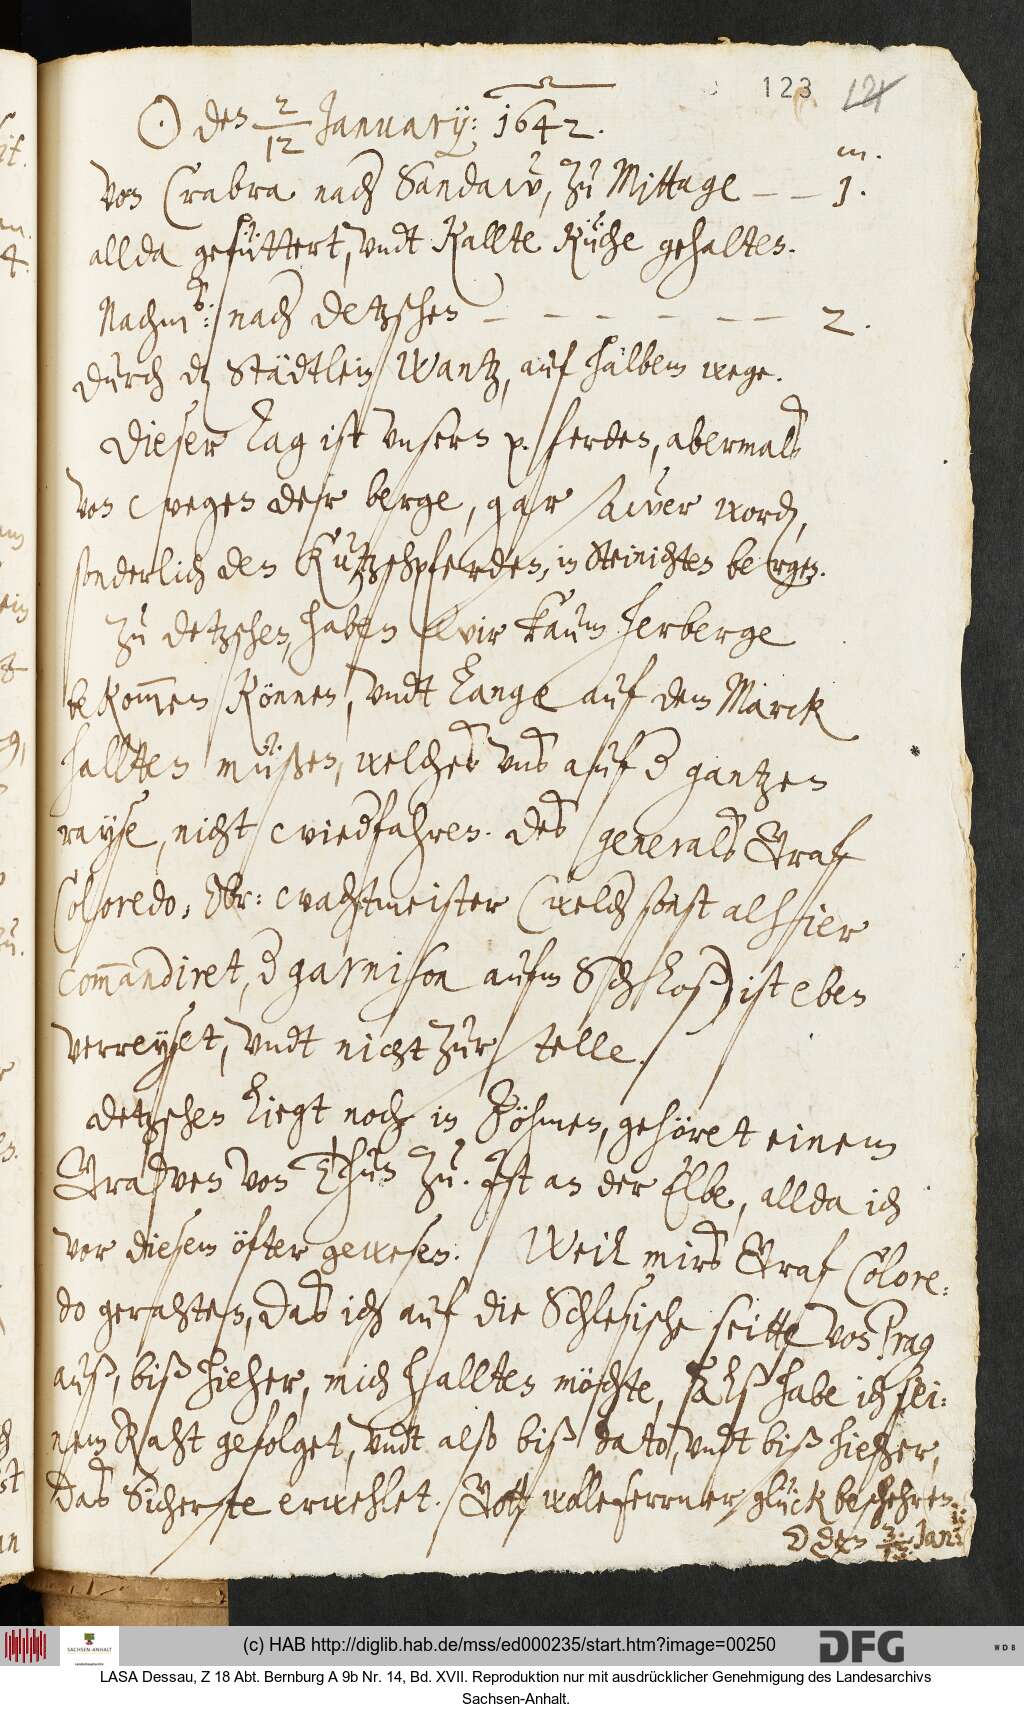 123 121
☉ den 2/12 January: 1642.
m.
Von Grabra nach Sandaw, zu Mittage — — 1.
allda gefüttert, vndt Kallte Küche gehalten.
Nachm: nach Detzschen — — — — — — 2.
durch dz Städtlein Wantz, auf halbem wege.
Dieser Tag ist vnsern pferden, abermals
von wegen der berge, gar sawer worden,
sonderlich den Kutzschpferden, in Steinichten bergen.
Zu Detzschen, haben wir kaum herberge
bekommen können, vndt lange auf dem Marck
hallten müßen, welches vns auf der gantzen
rayse, nicht wiederfahren. Des generals Graf
Coloredo, Obr: wachtmeister (welcher sonst alhier
commandiret, der garnison aufm Schloß) ist eben
verreyset, vndt nicht zur stelle.
Detzschen liegt noch in Böhmen, gehöret einem
Grafven von Thun zu. Ist an der Elbe, allda ich
vor diesem öfter gewesen. Weil mirs Graf Colore-
do gerahten, das ich auf die Schlesische seitte von Prag
auß, biß hieher, mich hallten möchte, Alß habe ich sei-
nem Raht gefolget, vndt also biß dato, vndt biß hieher,
das Sicherste erwehlet. Gott wolle ferrner glück beschehren.
☽ den 3/13 Jan:
(c) HAB http://diglib.hab.de/mss/ed000235/start.htm?image=00250
SACHSEN-ANHALT
DFG
WDB
LASA Dessau, Z 18 Abt. Bernburg A 9b Nr. 14, Bd. XVII. Reproduktion nur mit ausdrücklicher Genehmigung des Landesarchivs
Sachsen-Anhalt.